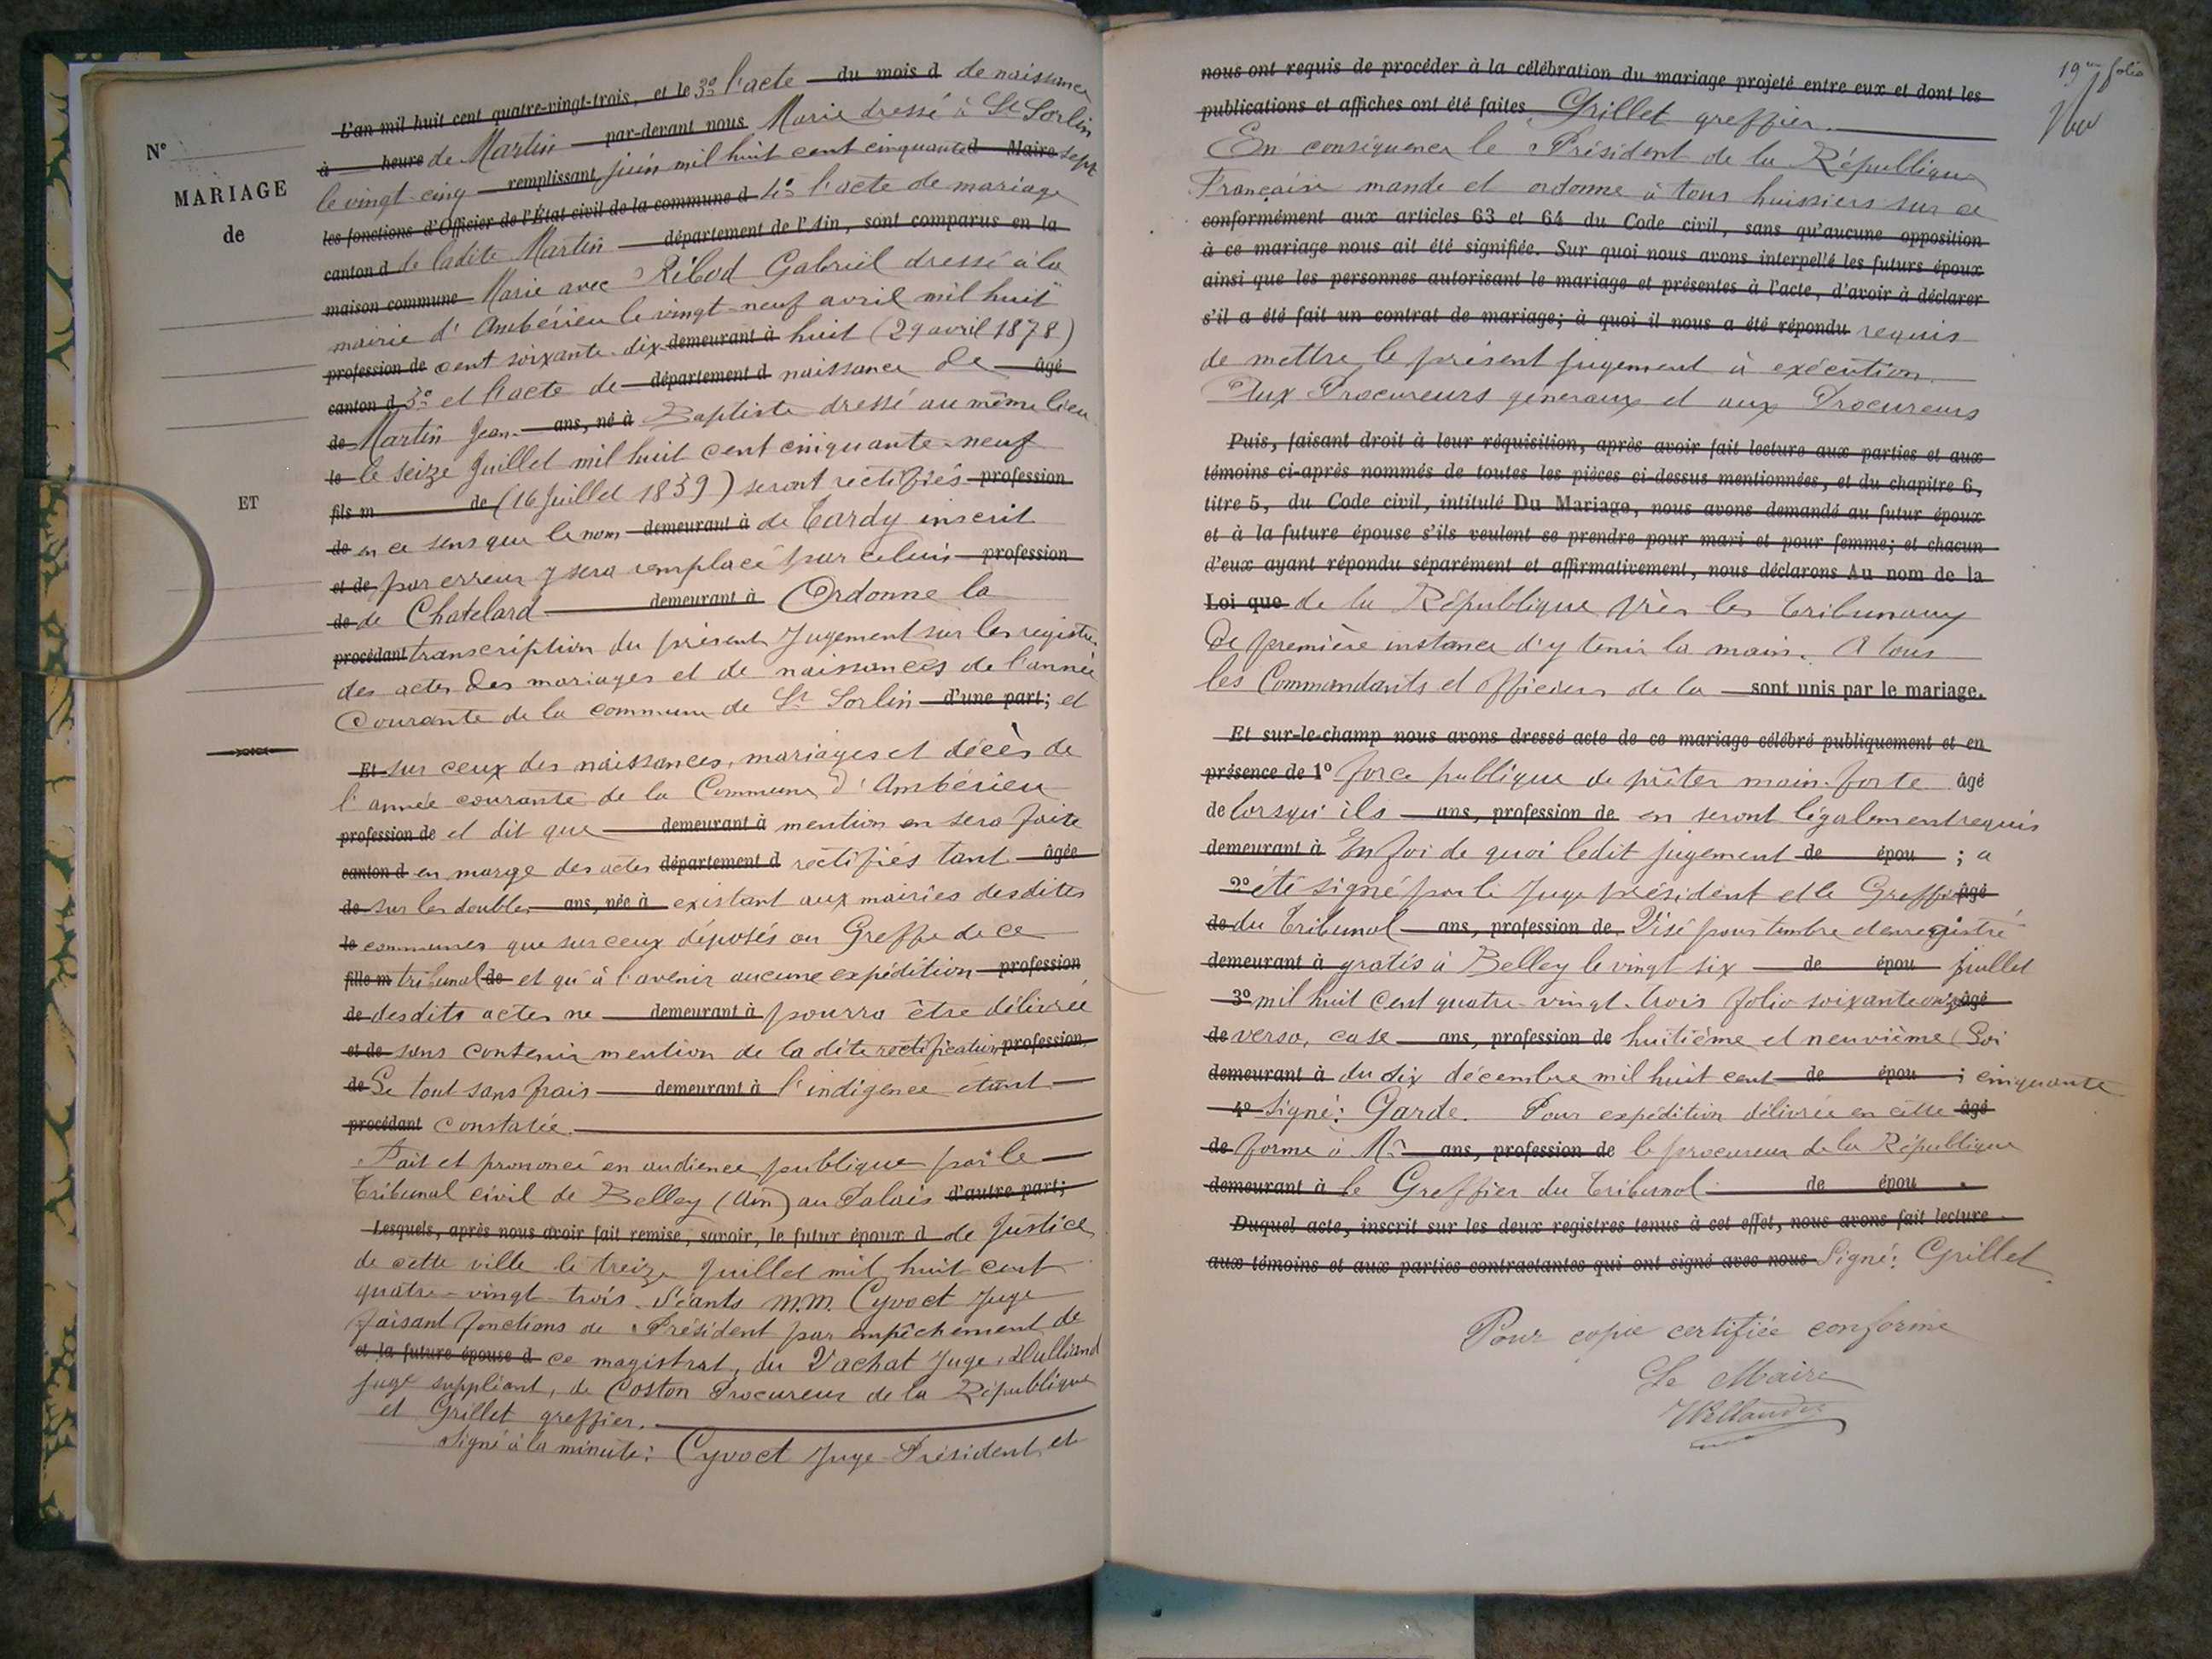 N°
MARIAGE
de
ET
L'an mil huit cent quatre-vingt-trois, et le 3° l'acte du mois d de naissance
à heure de Martin par-devant nous Marie dressé à St Sorlin
le vingt-cinq remplissant juin mil huit cent cinquante d Maire sept
les fonctions d'Officier de l'État civil de la commune d 4° l'acte de mariage
canton d de ladite Martin département de l'Ain, sont comparus en la
maison commune Marie avec Ribod Gabriel dressé à la
mairie d'Ambérieu le vingt-neuf avril mil huit
profession de cent soixante-dix demeurant à huit (29 avril 1878)
canton d 5° et l'acte de département d naissance de âgé
de Martin Jean- ans, né à Baptiste dressé au même lieu
le le seize Juillet mil huit cent cinquante-neuf
fils m de (16 Juillet 1859) seront rectifiés profession
de en ce sens que le nom demeurant à de Tardy inscrit
et de par erreur y sera remplacé par celui profession
de de Chatelard demeurant à Ordonne la
procédant transcription du présent Jugement sur les registres
des actes des mariages et de naissances de l'année
Courante de la commune de St Sorlin d'une part; et
Et sur ceux des naissances, mariages et décès de
l'année courante de la Commune d'Ambérieu
profession de et dit que demeurant à mention en sera faite
canton d en marge des actes département d rectifiés tant âgée
de sur les doubles ans, née à existant aux mairies desdites
le communes que sur ceux déposés au Greffe de ce
fille m tribunal de et qu'à l'avenir aucune expédition profession
de desdits actes ne demeurant à pourra être délivrée
et de sans contenir mention de la dite rectification profession
de Le tout sans frais demeurant à l'indigence étant
procédant constatée.
Fait et prononcé en audience publique par le
Tribunal civil de Belley (Ain) au Palais d'autre part;
Lesquels, après nous avoir fait remise, savoir, le futur époux d de Justice
de cette ville le treize Juillet mil huit cent
quatre-vingt-trois. Séants M.M. Cyvoct Juge
faisant fonctions de Président par empêchement de
et la future épouse d ce magistrat, du Vachat Juge, Dulliand
juge suppléant, de Coston Procureur de la République
et Grillet greffier.
Signé à la minute: Cyvoct Juge-Président et
19me folio
nous ont requis de procéder à la célébration du mariage projeté entre eux et dont les
publications et affiches ont été faites Grillet greffier.
En conséquence le Président de la République
Française mande et ordonne à tous huissiers sur ce
conformément aux articles 63 et 64 du Code civil, sans qu'aucune opposition
à ce mariage nous ait été signifiée. Sur quoi nous avons interpellé les futurs époux
ainsi que les personnes autorisant le mariage et présentes à l'acte, d'avoir à déclarer
s'il a été fait un contrat de mariage; à quoi il nous a été répondu requis
de mettre le présent jugement à exécution.
Aux Procureurs généraux et aux Procureurs
Puis, faisant droit à leur réquisition, après avoir fait lecture aux parties et aux
témoins ci-après nommés de toutes les pièces ci-dessus mentionnées, et du chapitre 6,
titre 5, du Code civil, intitulé Du Mariage, nous avons demandé au futur époux
et à la future épouse s'ils veulent se prendre pour mari et pour femme; et chacun
d'eux ayant répondu séparément et affirmativement, nous déclarons Au nom de la
Loi que de la République près les tribunaux
De première instance d'y tenir la main. A tous
les Commandants et officiers de la sont unis par le mariage.
Et sur-le-champ nous avons dressé acte de ce mariage célébré publiquement et en
présence de 1° force publique de prêter main-forte âgé
de lorsqu'ils ans, profession de en seront légalement requis
demeurant à En foi de quoi ledit jugement de épou ; a
2° été signé par le Juge président et le Greffier âgé
de du Tribunal ans, profession de Visé pour timbre et enregistré
demeurant à gratis à Belley le vingt six de épou juillet
3° mil huit cent quatre-vingt-trois folio soixante onze âgé
de verso, case ans, profession de huitième et neuvième (Loi
demeurant à du dix décembre mil huit cent de épou ; cinquante
4° Signé: Garde. Pour expédition délivrée en cette âgé
de forme à Mr ans, profession de le procureur de la République
demeurant à le Greffier du tribunal de épou .
Duquel acte, inscrit sur les deux registres tenus à cet effet, nous avons fait lecture
aux témoins et aux parties contractantes qui ont signé avec nous Signé: Grillet
Pour copie certifiée conforme
Le Maire